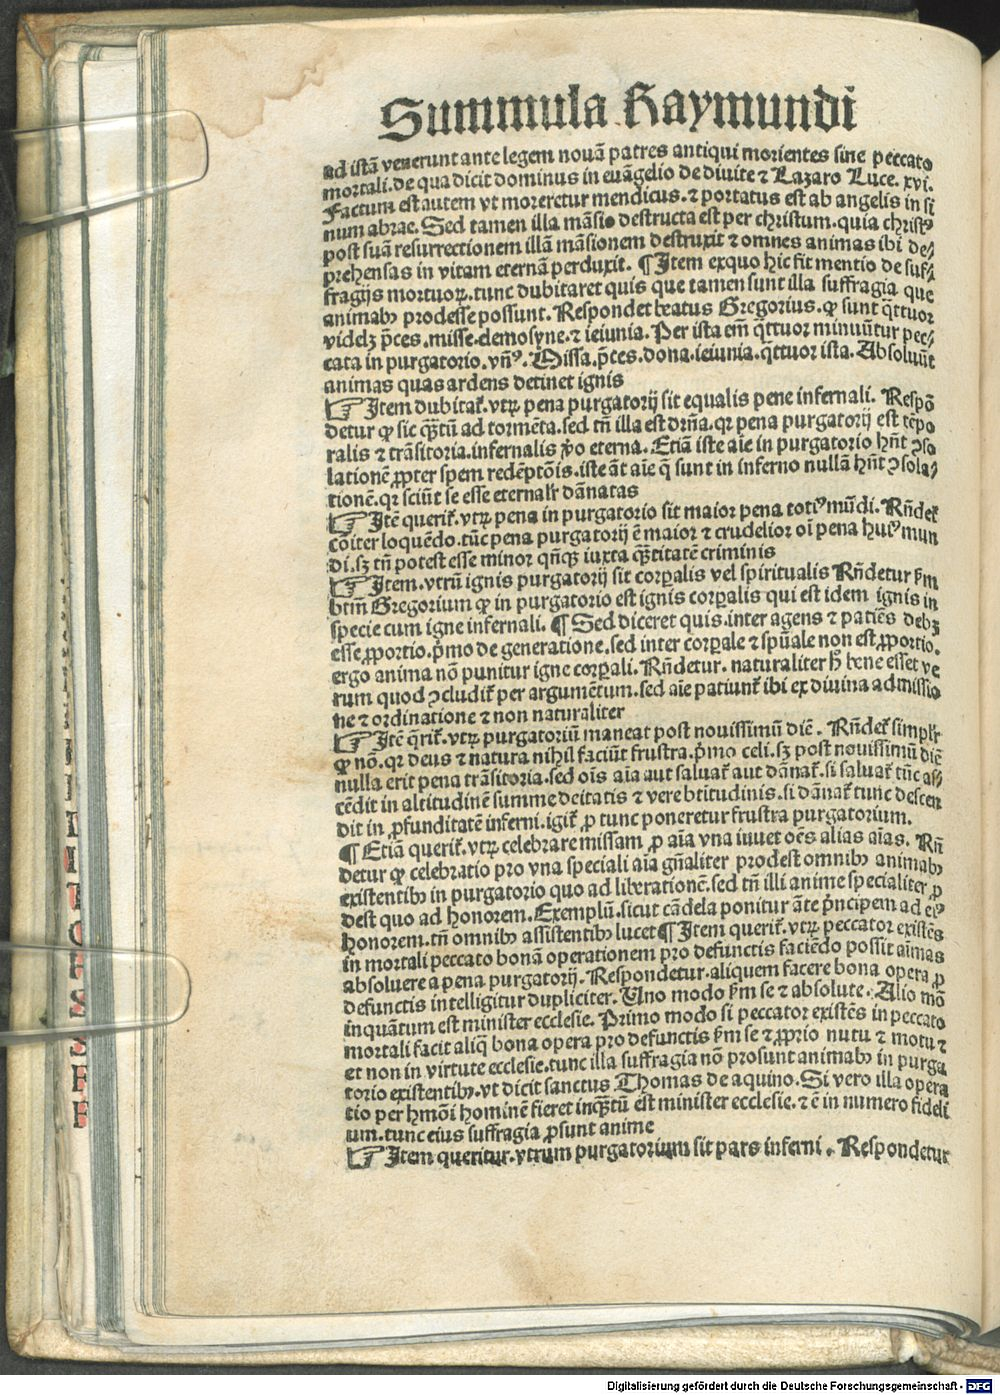 Summula Raymundi
ad istā venerunt ante legem nouā patres antiqui morientes sine peccato
mortali. de qua dicit dominus in euāgelio de diuite ⁊ Lazaro Luce. xvi.
Factum est autem vt moreretur mendicus. ⁊ portatus est ab angelis in si
num abrae. Sed tamen illa māsio destructa est per christum. quia christꝰ
post suā resurrectionem illā māsionem destruxit ⁊ omnes animas ibi de⸗
prehensas in vitam eternā perduxit. ¶ Item exquo hic fit mentio de suf⸗
fragijs mortuoꝝ. tunc dubitaret quis que tamen sunt illa suffragia que
animabꝰ prodesse possunt. Respondet beatus Gregorius. ꝙ sunt q̄ttuor
videlꝫ p̄ces. misse. elemosyne. ⁊ ieiunia. Per ista em̄ q̄ttuor minuūtur pec⸗
cata in purgatorio. vn̄ꝰ. Missa. p̄ces. dona. ieiunia. q̄ttuor ista. Absoluūt
animas quas ardens detinet ignis
☞ Item dubitat᷑. vtꝝ pena purgatorij sit equalis pene infernali. Respō
detur ꝙ sic q̄ꝫtū ad tormēta. sed tn̄ illa est dr̄na. qꝛ pena purgatorij est tēpo
ralis ⁊ trāsitoria. infernalis ꝟo eterna. Etiā iste aīe in purgatorio hn̄t ꝯso
lationē ꝓpter spem redēptōis. iste āt aīe q̄ sunt in inferno nullā hn̄t ꝯsola⸗
tionē. qꝛ sciūt se esse eternalr̄ dānatas
☞ Itē querit᷑. vtꝝ pena in purgatorio sit maior pena totiꝰ mūdi. Rn̄det᷑
cōiter loquēdo. tūc pena purgatorij ē maior ⁊ crudelior oī pena huiꝰ mun
di. sꝫ tn̄ potest esse minor qn̄qꝫ iuxta q̄ꝫtitatē criminis
☞ Item. vtrū ignis purgatorij sit corꝑalis vel spiritualis Rn̄detur ẜm
btm̄ Gregorium ꝙ in purgatorio est ignis corꝑalis qui est idem ignis in
specie cum igne infernali. ¶ Sed diceret quis. inter agens ⁊ patiēs debꝫ
esse ꝓportio. p̄mo de generatione. sed inter corꝑale ⁊ spūale non est ꝓportio.
ergo anima nō punitur igne corꝑali. Rn̄detur. naturaliter hꝫ bene esset ve
rum quod ꝯcludit᷑ per argumētum. sed aīe patiunt᷑ ibi ex diuina admissio
ne ⁊ ordinatione ⁊ non naturaliter
☞ Itē q̄rit᷑. vtꝝ purgatoriū maneat post nouissimū diē. Rn̄det᷑ simplr̄
ꝙ nō. qꝛ deus ⁊ natura nihil faciūt frustra. p̄mo celi. sꝫ post nouissimū diē
nulla erit pena trāsitoria. sed oīs aīa aut saluat᷑ aut dānat᷑. si saluat᷑ tūc as⸗
cēdit in altitudinē summe deitatis ⁊ vere btitudinis. si dānat᷑ tunc descen
dit in ꝓfunditatē inferni. igit᷑ ꝓ tunc poneretur frustra purgatorium.
¶ Etiā querit᷑. vtꝝ celebrare missam ꝓ aīa vna iuuet oēs alias aīas. Rn̄
detur ꝙ celebratio pro vna speciali aīa gn̄aliter prodest omnibꝰ animabꝰ
existentibꝰ in purgatorio quo ad liberationē. sed tn̄ illi anime specialiter ꝓ
dest quo ad honorem. Exemplū. sicut cādela ponitur āte p̄ncipem ad eiꝰ
honorem. tn̄ omnibꝰ assistentibꝰ lucet ¶ Item querit᷑. vtꝝ peccator existēs
in mortali peccato bonā operationem pro defunctis faciēdo possit aīmas
absoluere a pena purgatorij. Respondetur. aliquem facere bona opera ꝓ
defunctis intelligitur dupliciter. Uno modo ẜm se ⁊ absolute. Alio mō
inquātum est minister ecclesie. Primo modo si peccator existēs in peccato
mortali facit aliq̄ bona opera pro defunctis ẜm se ⁊ ꝓprio nutu ⁊ motu ⁊
et non in virtute ecclesie. tunc illa suffragia nō prosunt animabꝰ in purga
torio existentibꝰ. vt dicit sanctus Thomas de aquino. Si vero illa opera
tio per hmōi hominē fieret inq̄ꝫtū est minister ecclesie. ⁊ ē in numero fideli
um. tunc eius suffragia ꝓsunt anime
☞ Item queritur. vtrum purgatorium sit pars inferni. Respondetur
Digitalisierung gefördert durch die Deutsche Forschungsgemeinschaft - DFG